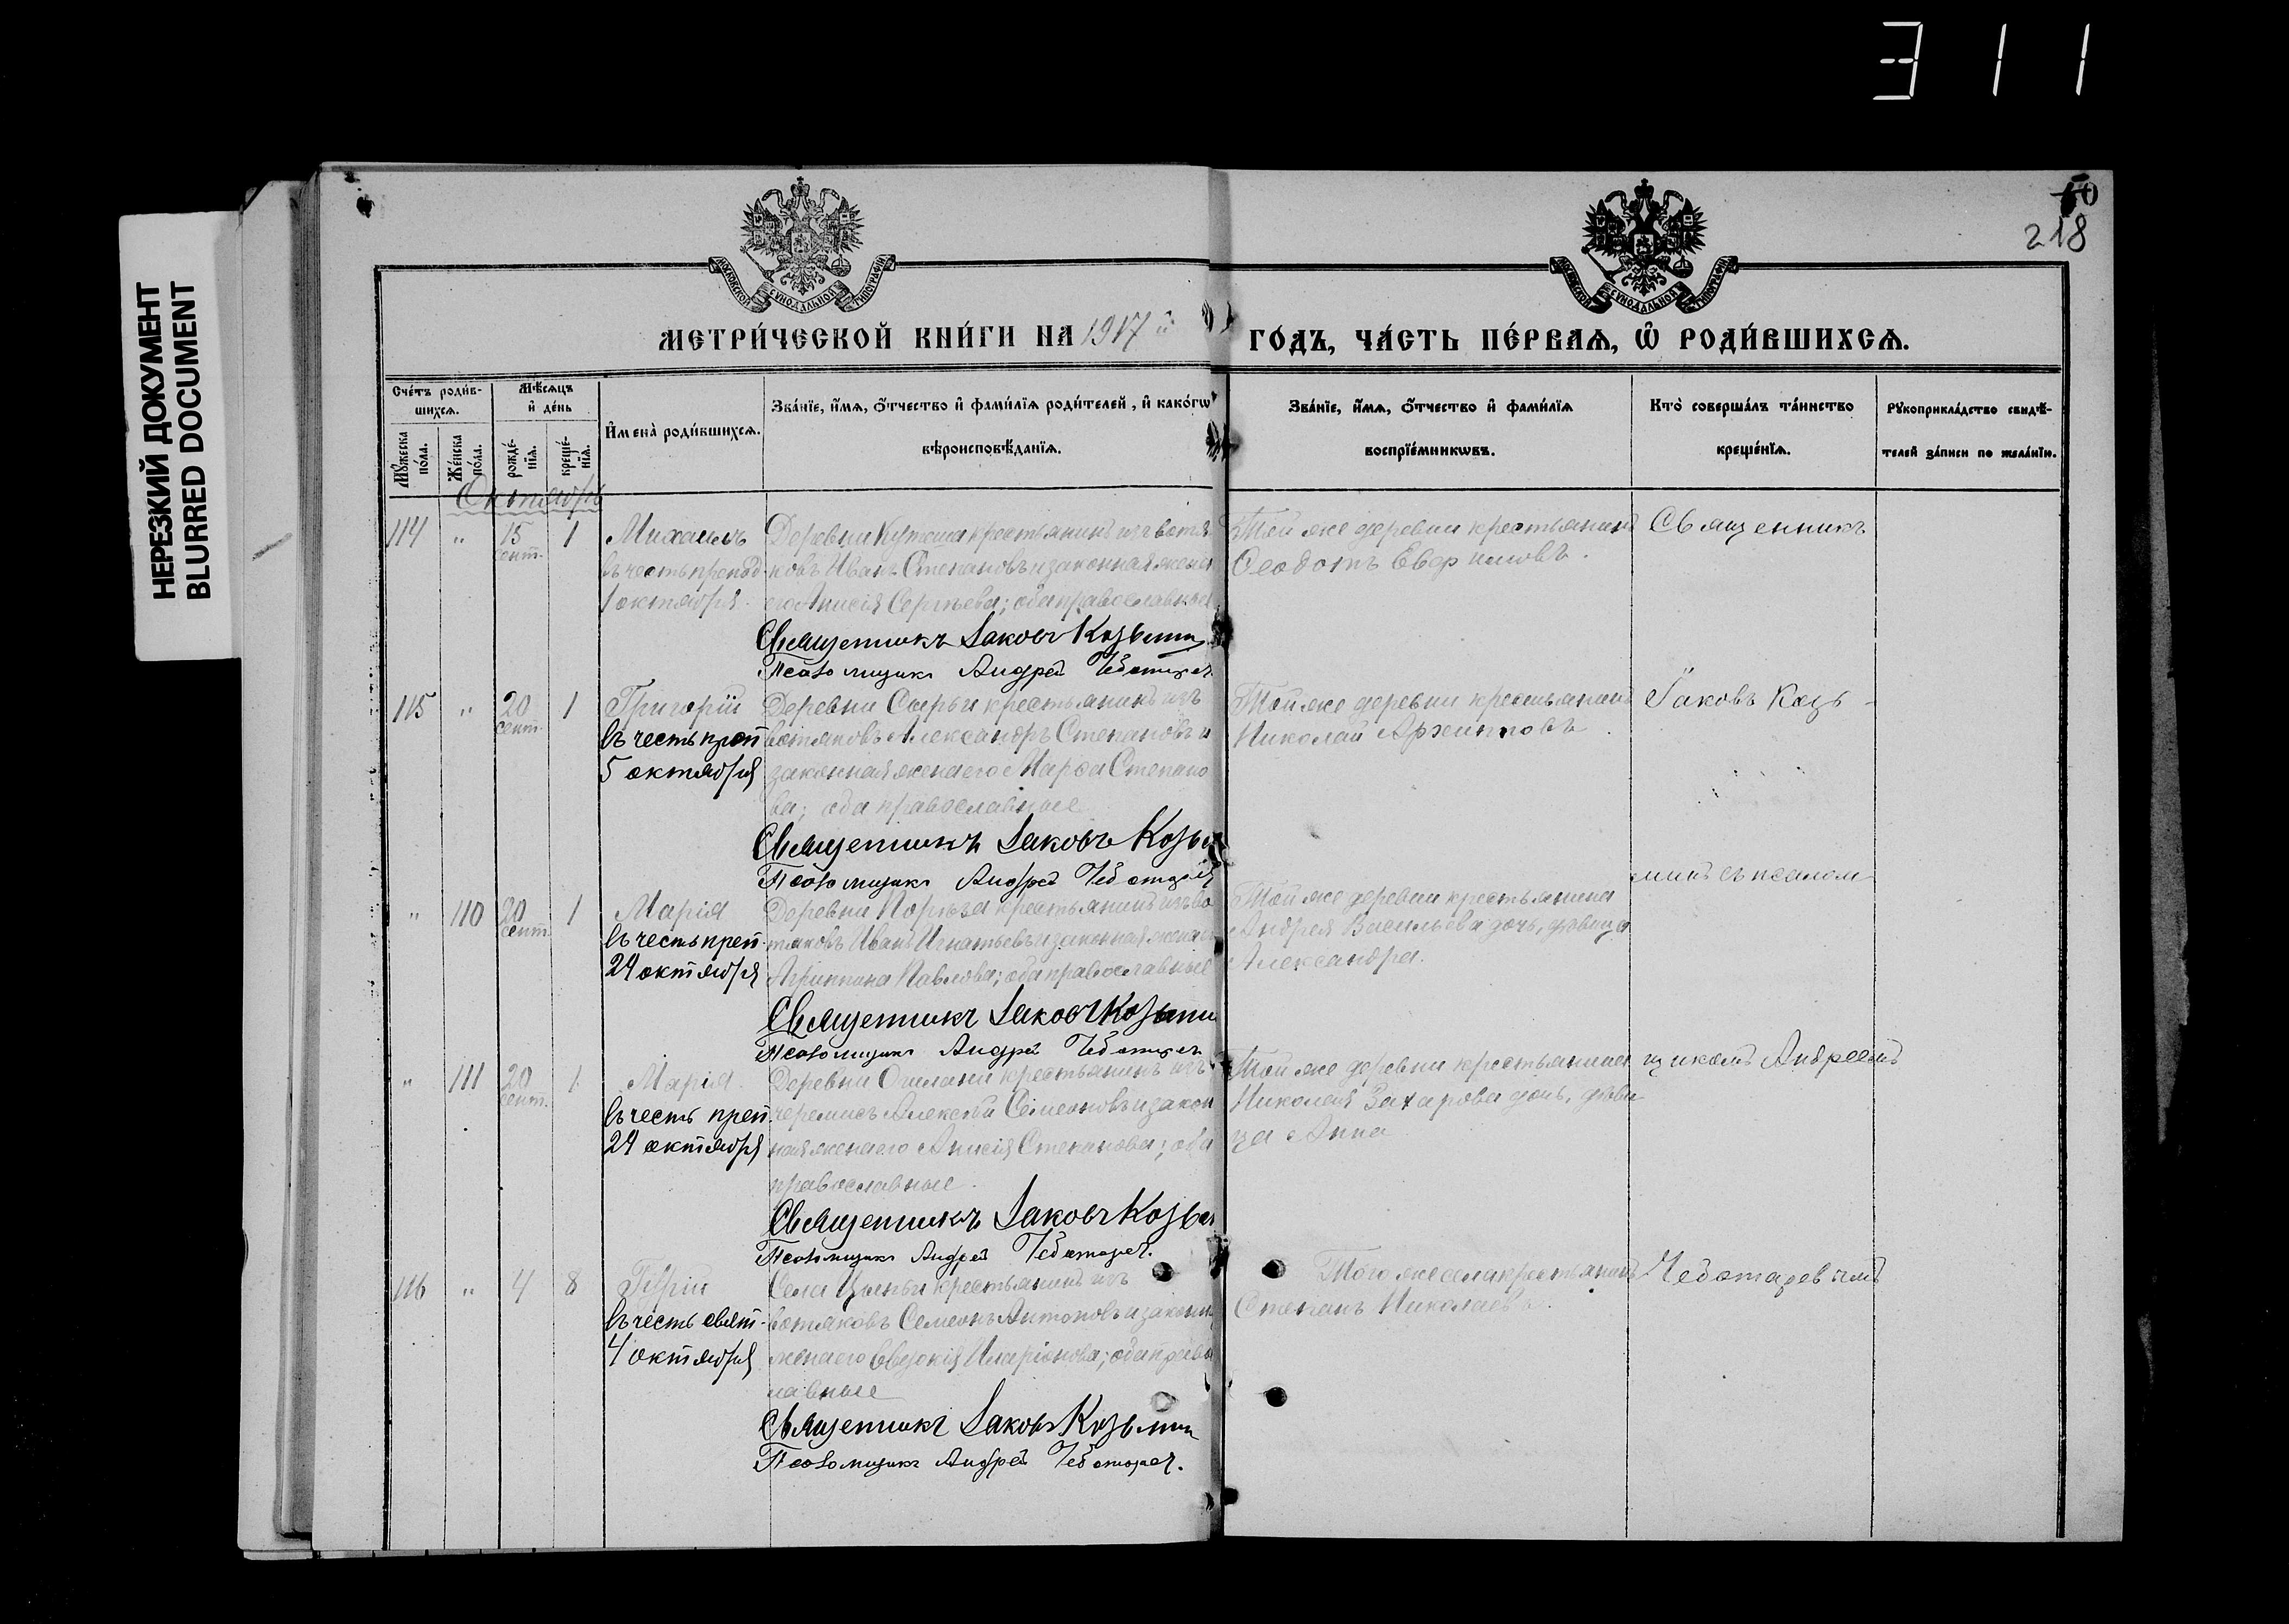 311
НЕРЕЗКИЙ ДОКУМЕНТ
BLURRED DOCUMENT
218
МОСКОВСКОЙ СУНОДАЛЬНОЙ ТИПОГРАФІИ
МОСКОВСКОЙ СУНОДАЛЬНОЙ ТИПОГРАФІИ
МЕТРИ́ЧЕСКОЙ КНИ́ГИ НА 1917 й
ГОДЪ, ЧА́СТЬ ПЕ́РВАЯ, Ѡ РОДИ́ВШИХСЯ.
Сче́тъ роди́в-
шихся.
Мѣсяцъ
и҆ де́нь
Мꙋжеска по́ла.
Же́нска по́ла.
рожде́-
нїя.
креще́-
нїя.
И҆мена̀ роди́вшихся.
Зва́нїе, и҆́мя, ѻ҆́тчество и҆ фами́лїя роди́телей, и҆ како́гѡ
вѣроисповѣ́данїя.
Зва́нїе, и҆́мя, ѻ҆́тчество и҆ фами́лїя
воспрїе́мникѡвъ.
Кто̀ соверша́лъ та́инство
креще́нїя.
Рꙋкоприкла́дство свидѣ́-
телей за́писи по жела́нїю.
Октябрь
114 " 15 сент. 1
Михаилъ
въ честь препод.
1 октября.
Деревни крестьянинъ изъ вотя
ковъ Иванъ Степановъ и законная жена
его Анисія Сергѣева; оба православные
Священникъ Іаковъ Козьмин
Псаломщикъ Андрей Чеботарев
Той же деревни крестьянинъ
Ѳеодотъ
Священникъ
115 " 20 сент. 1
Григорій
въ честь преп
5 октября
Деревни Сырьи крестьянинъ изъ
вотяковъ Александръ Степановъ и
законная жена его Марѳа Степано
ва; оба православные
Священникъ Іаковъ Козьм
Псаломщикъ Андрей Чеботарев
Той же деревни крестьянинъ
Николай Архиповъ
Іаковъ Козь
минъ съ псалом
" 110 20 сент 1
Марія
въ честь преп.
29 октября
Деревни крестьянинъ изъ во
тяковъ Иванъ Игнатьевъ и законная жена его
Агриппина Павлова; оба православные
Священникъ Іаковъ Козьмин
Псаломщикъ Андрей Чеботарев
Той же деревни крестьянина
Андрея Васильева дочь, дѣвица
Александра.
" 111 20 сент. 1
Марія
въ честь преп.
29 октября
Деревни крестьянинъ изъ
черемисъ Алексѣй Симеоновъ и закон
ная жена его Анисія Степанова; оба
православные.
Священникъ Іаковъ Козьм
Псаломщикъ Андрей Чеботарев.
Той же деревни крестьянина
Николая Захарова дочь, дѣви
ца Анна
щикомъ Андреемъ
116 " 4 8
въ честь свят.
4 октября
Села Цыпьи крестьянинъ изъ
вотяковъ Симеонъ Антоновъ и законн
жена его Евдокія Иларіонова; оба правос
лавные
Священникъ Іаковъ Козьмин
Псаломщикъ Андрей Чеботарев.
Того же села крестьянинъ
Степанъ Николаевъ.
Чеботаревымъ